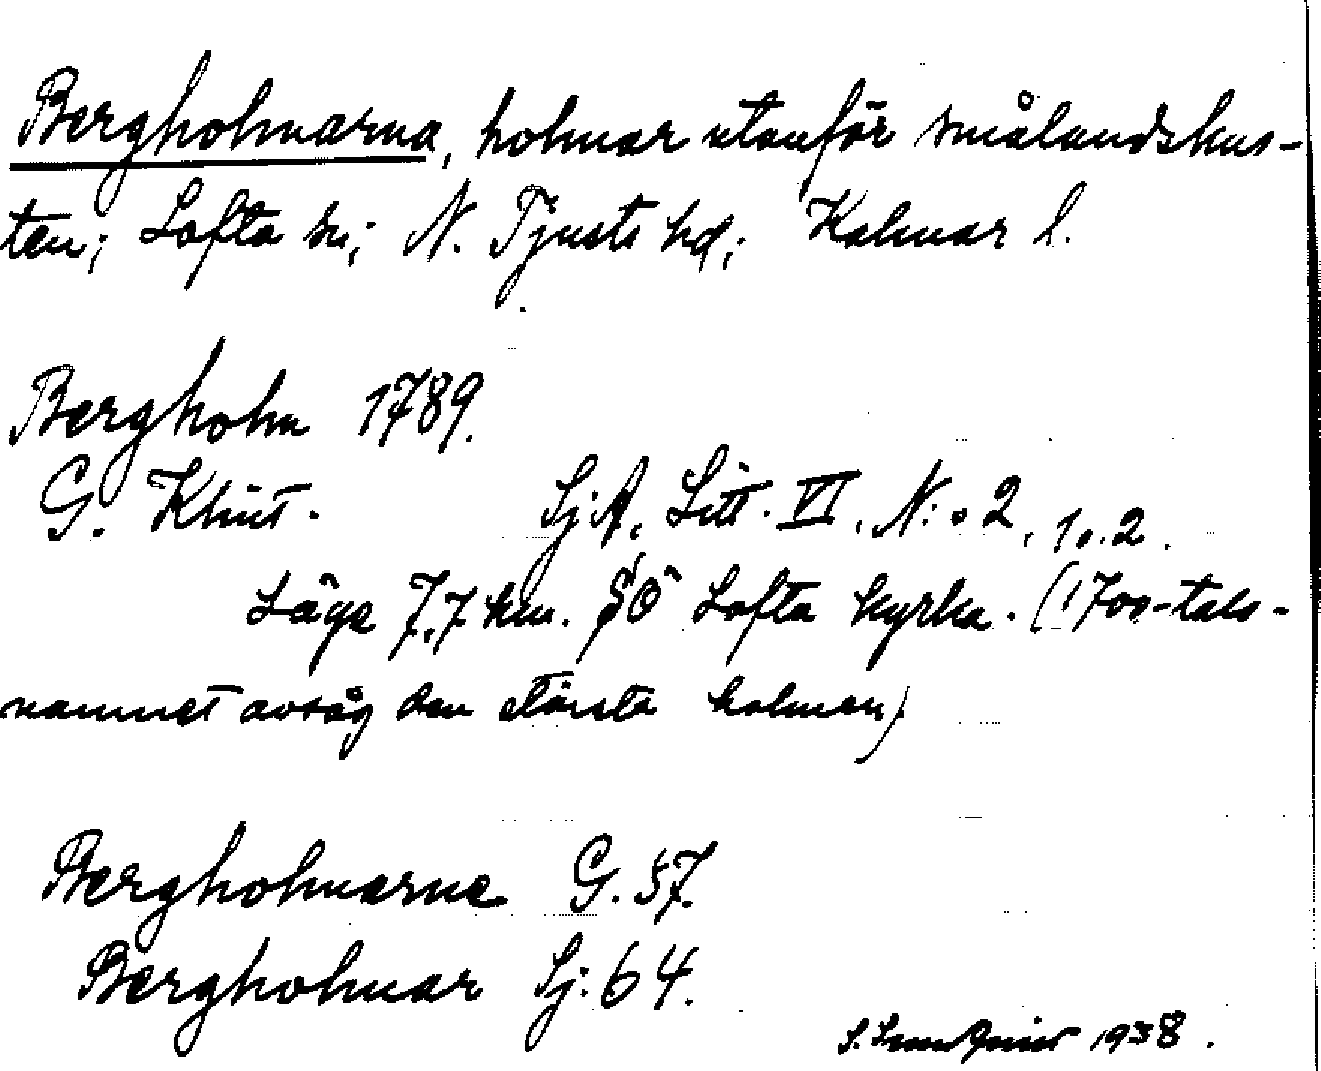 Bergholmarna, holmar utanför smålandskus-
ten; Lofta sn; N. Tjusts hd; Kalmar l.
Bergholm 1789.
G. Klint. SjA, Litt. VI, N:o 2, 1o.2.
Läge 7,7 km. SO Lofta kyrka. (1700-tals-
namnet avsåg den största holmen)
Bergholmarne G. 57.
Bergholmar Sj: 64.
S. 1938.